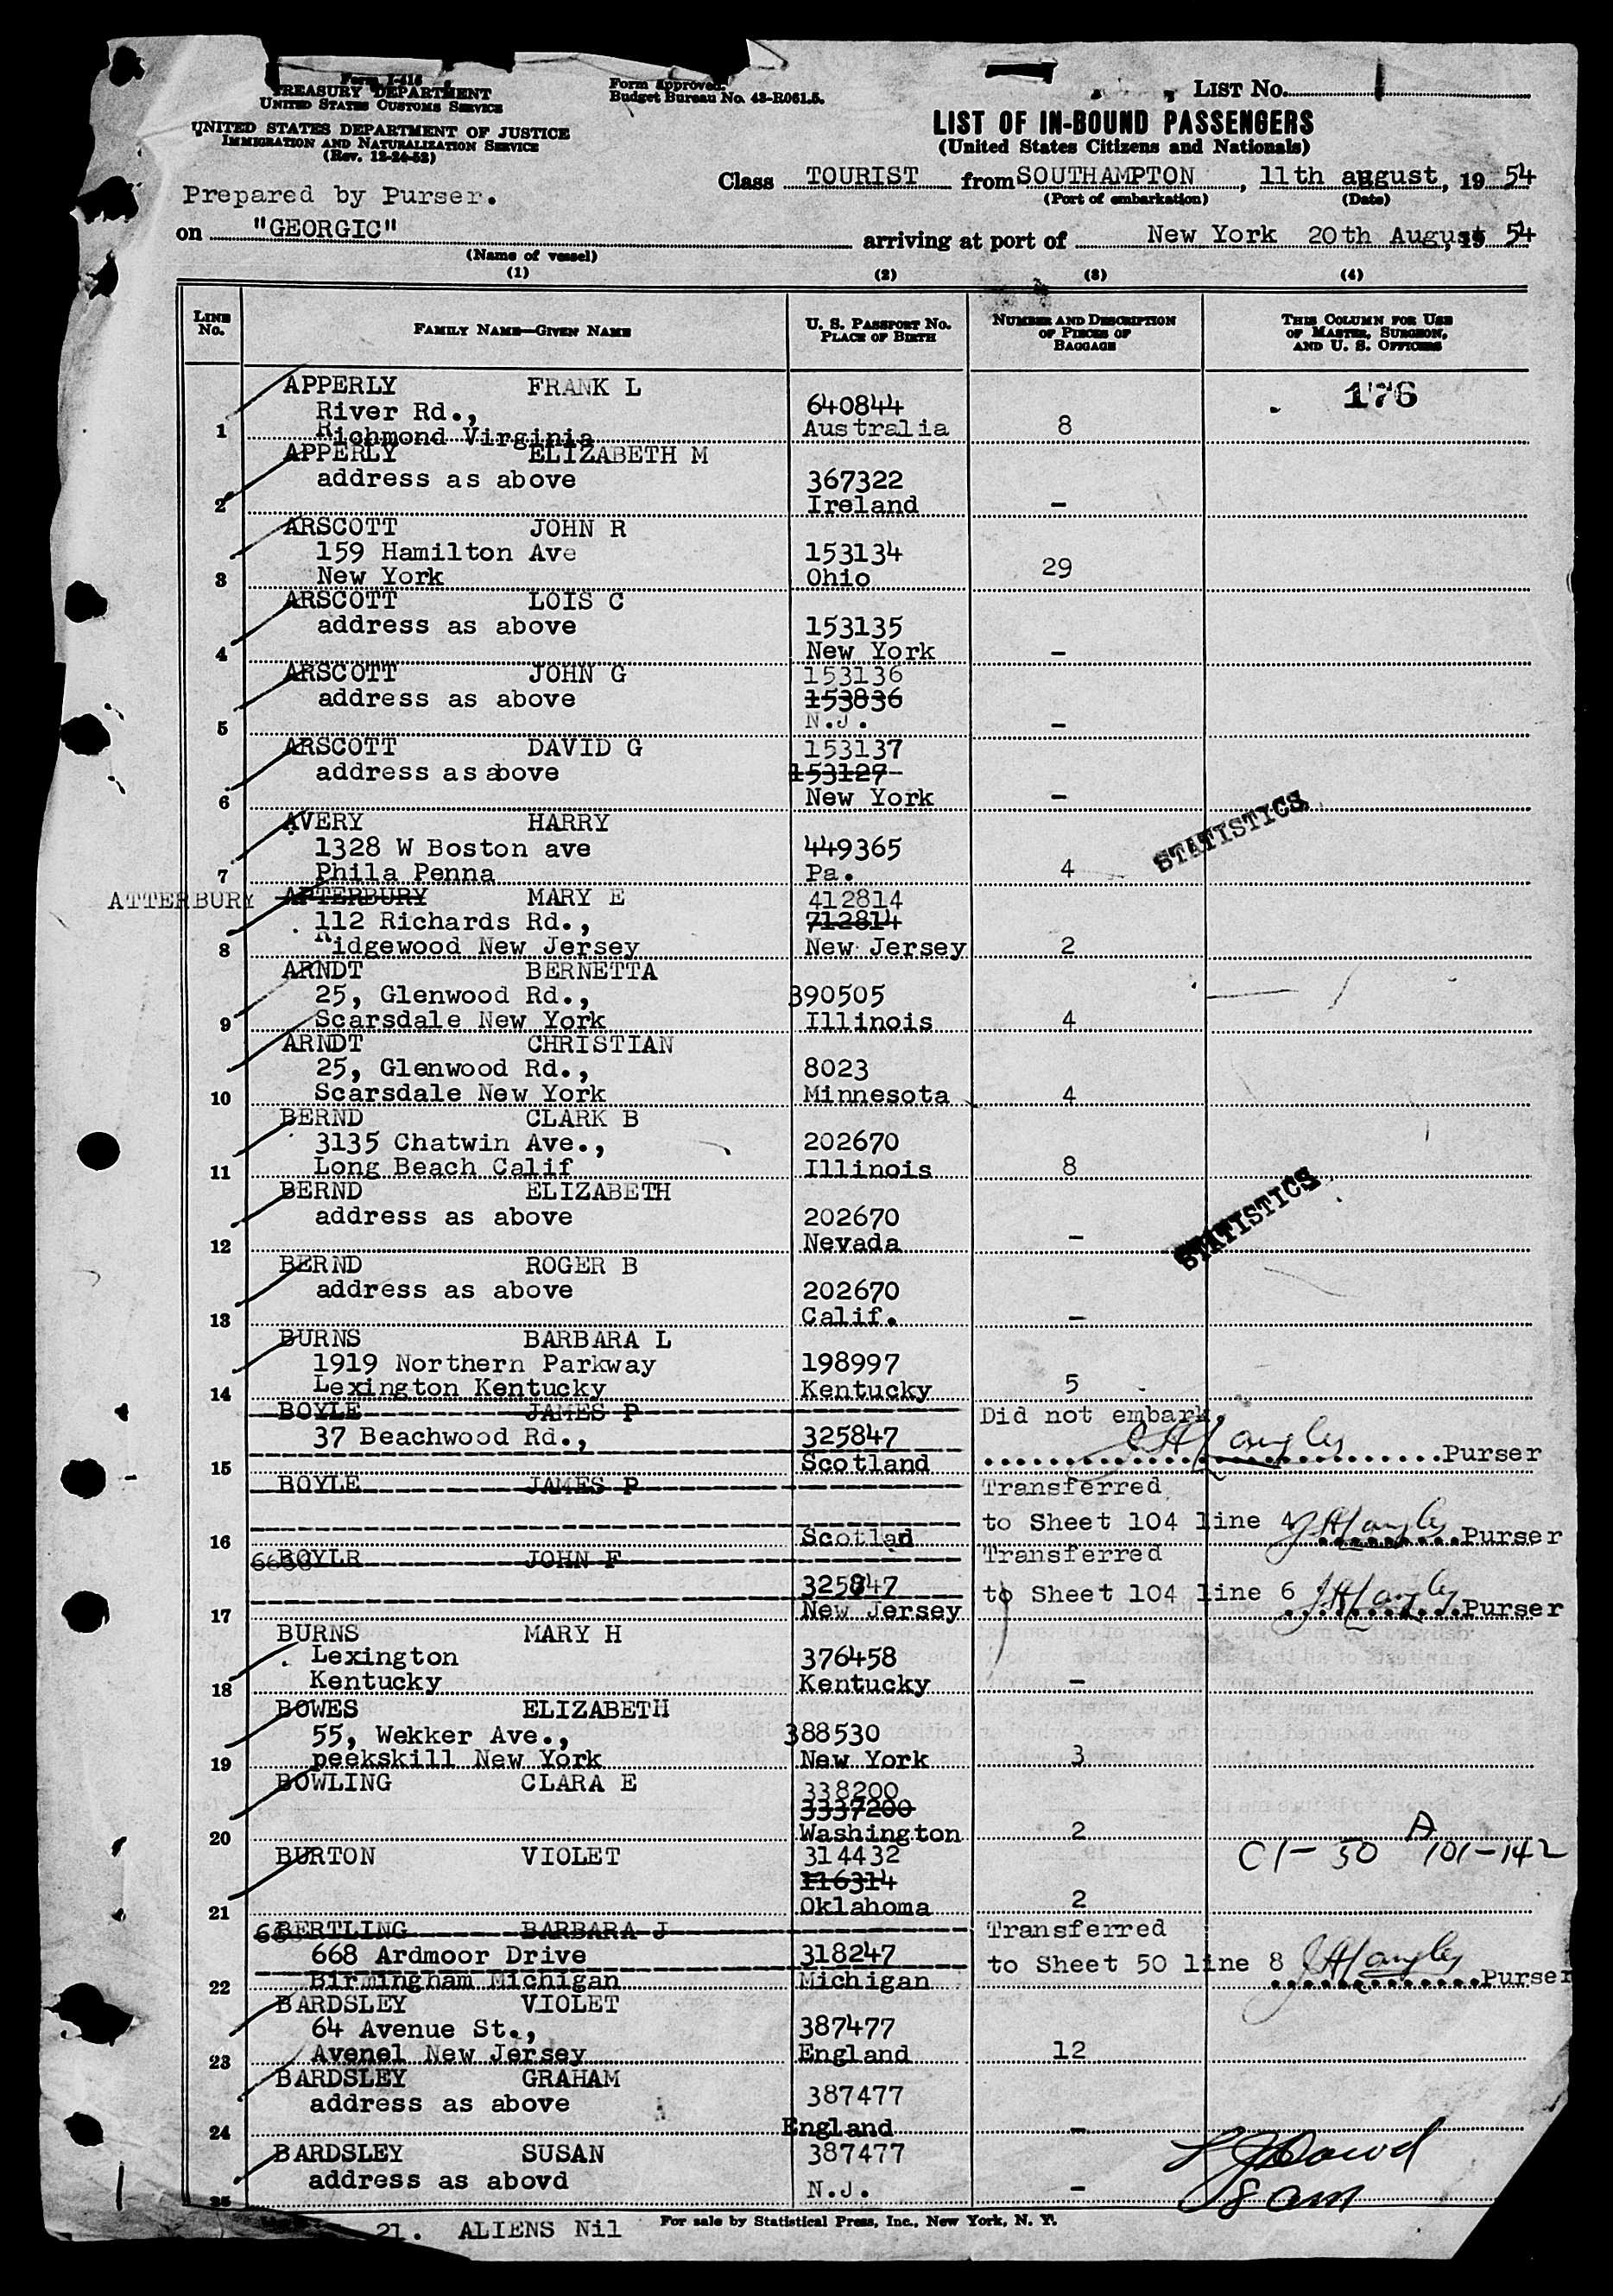 Form I-418
TREASURY DEPARTMENT
UNITED STATES CUSTOMS SERVICE
UNITED STATES DEPARTMENT OF JUSTICE
IMMIGRATION AND NATURALIZATION SERVICE
(Rev. 12-24-52)
Form approved.
Budget Bureau No. 43-R061.5.
LIST No. 1
LIST OF IN-BOUND PASSENGERS
(United States Citizens and Nationals)
Class TOURIST from SOUTHAMPTON, 11th august, 19 54
(Port of embarkation) (Date)
Prepared by Purser.
on "GEORGIC" arriving at port of New York 20th August 19 54
(Name of vessel)
(1) (2) (3) (4)
LINE No. FAMILY NAME—GIVEN NAME U. S. PASSPORT No. PLACE OF BIRTH NUMBER AND DESCRIPTION OF PIECES OF BAGGAGE THIS COLUMN FOR USE OF MASTER, SURGEON, AND U. S. OFFICERS
176
APPERLY FRANK L
River Rd., 640844
1 Richmond Virginia Australia 8
APPERLY ELIZABETH M
address as above 367322
2 Ireland -
ARSCOTT JOHN R
159 Hamilton Ave 153134
3 New York Ohio 29
ARSCOTT LOIS C
address as above 153135
4 New York -
ARSCOTT JOHN G 153136
address as above 153836
5 N.J. -
ARSCOTT DAVID G 153137
address as above 153127
6 New York -
AVERY HARRY
1328 W Boston ave 449365
7 Phila Penna Pa. 4
STATISTICS
ATTERBURY APTERBURY MARY E 412814
112 Richards Rd., 712814
8 Ridgewood New Jersey New Jersey 2
ARNDT BERNETTA
25, Glenwood Rd., 390505
9 Scarsdale New York Illinois 4
ARNDT CHRISTIAN
25, Glenwood Rd., 8023
10 Scarsdale New York Minnesota 4
BERND CLARK B
3135 Chatwin Ave., 202670
11 Long Beach Calif Illinois 8
BERND ELIZABETH
address as above 202670
12 Nevada -
STATISTICS
BERND ROGER B
address as above 202670
13 Calif. -
BURNS BARBARA L
1919 Northern Parkway 198997
14 Lexington Kentucky Kentucky 5
BOYLE JAMES P Did not embark,
37 Beachwood Rd., 325847
15 Scotland JHLangley Purser
BOYLE JAMES P Transferred
to Sheet 104 line 4 JHLangley Purser
16 Scotlad
BOYLR JOHN F Transferred
325847 to Sheet 104 line 6 JHLangley Purser
17 New Jersey
BURNS MARY H
Lexington 376458
18 Kentucky Kentucky -
BOWES ELIZABETH
55, Wekker Ave., 388530
19 peekskill New York New York 3
BOWLING CLARA E 338200
3337200
20 Washington 2
BURTON VIOLET 314432
C1-30 A 101-142
116314
21 Oklahoma 2
BERTLING BARBARA J Transferred
668 Ardmoor Drive 318247 to Sheet 50 line 8 JHLangley Purser
22 Birmingham Michigan Michigan
BARDSLEY VIOLET
64 Avenue St., 387477
23 Avenel New Jersey England 12
BARDSLEY GRAHAM
address as above 387477
24 England -
BARDSLEY SUSAN 387477
address as abovd
25 N.J. -
21. ALIENS Nil For sale by Statistical Press, Inc., New York, N. Y.